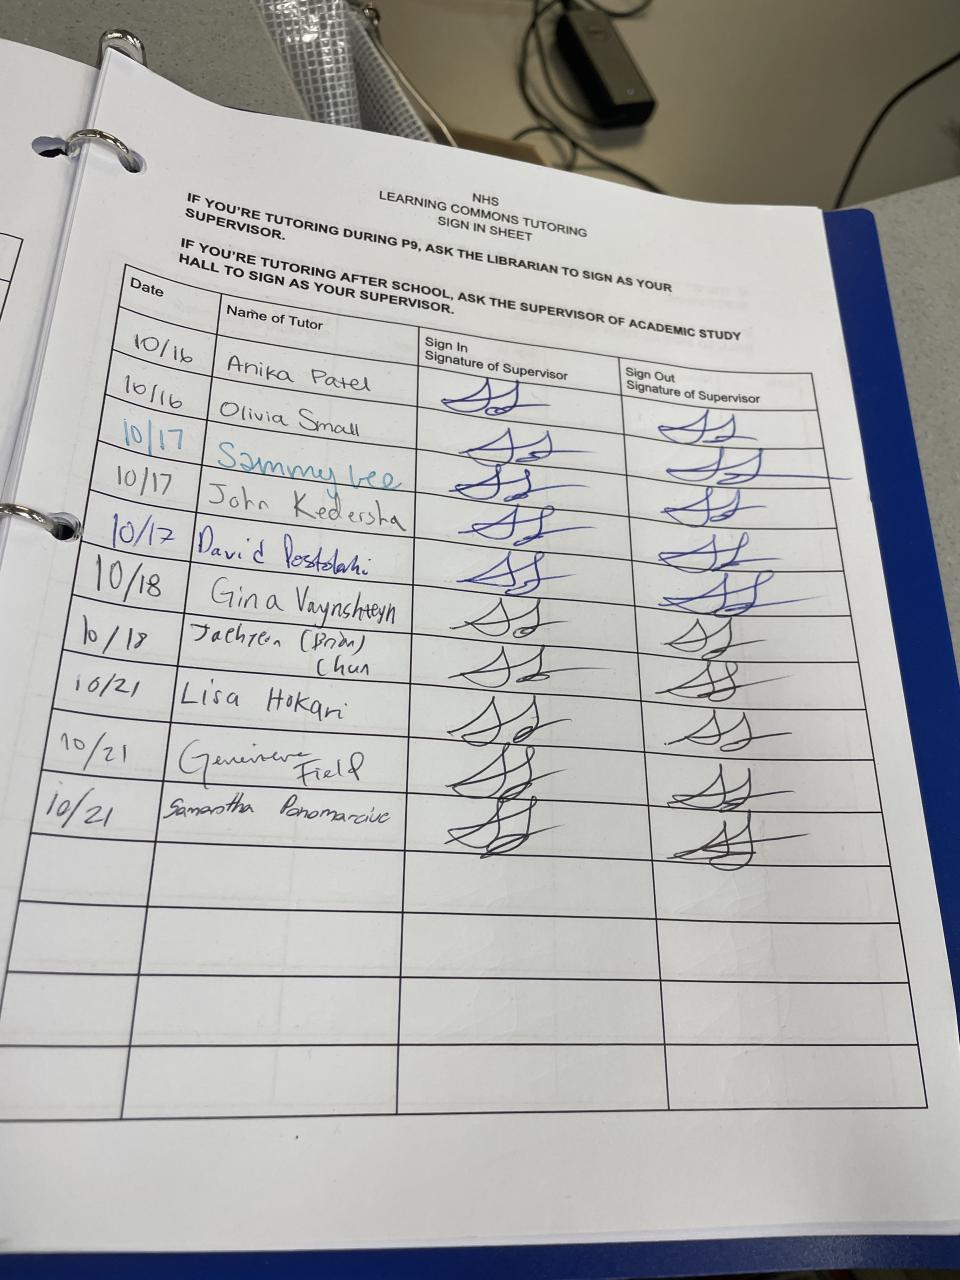 NHS
LEARNING COMMONS TUTORING
SIGN IN SHEET
IF YOU'RE TUTORING DURING P9, ASK THE LIBRARIAN TO SIGN AS YOUR
SUPERVISOR.
IF YOU'RE TUTORING AFTER SCHOOL, ASK THE SUPERVISOR OF ACADEMIC STUDY
HALL TO SIGN AS YOUR SUPERVISOR.
Date
Name of Tutor
Sign In
Signature of Supervisor
Sign Out
Signature of Supervisor
10/16 Anika Patel
10/16 Olivia Small
10/17 Sammy Lee
10/17 John Kedersha
10/17 David Postolaki
10/18 Gina Vaynshteyn
10/18 (Brian)
Chun
10/21 Lisa Hokari
10/21 Genevieve
Field
10/21 Samantha